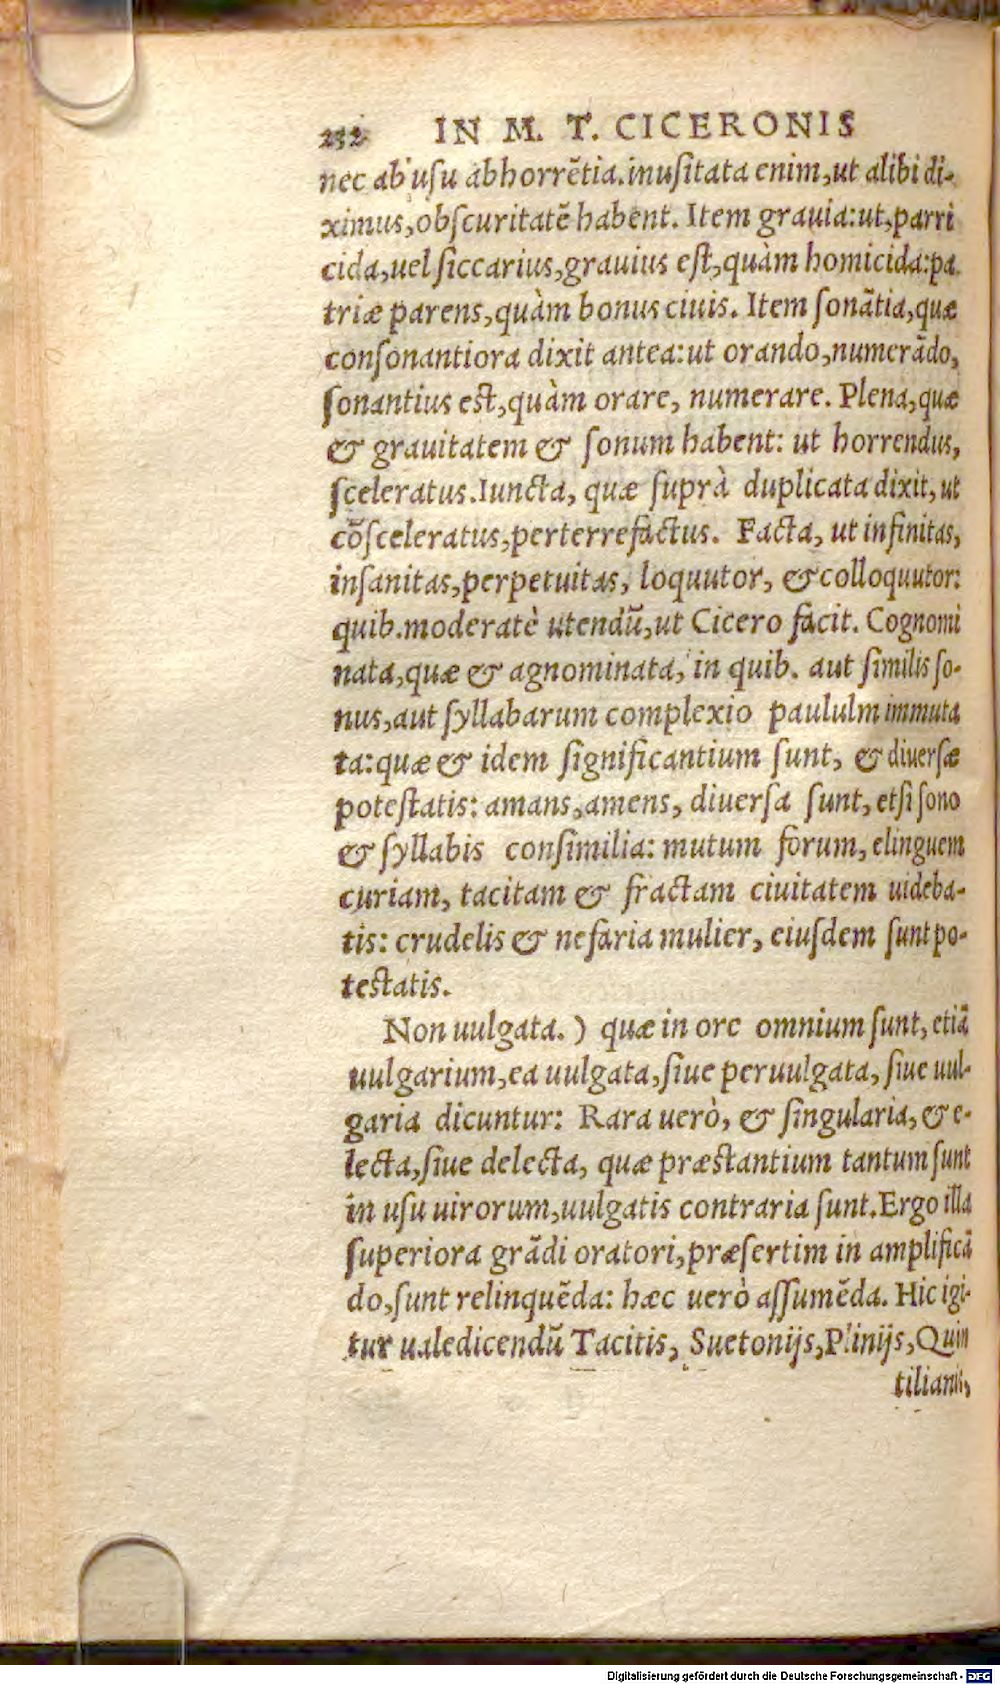 232 IN M. T. CICERONIS
nec ab usu abhorrẽtia. inusitata enim, ut alibi di-
ximus, obscuritatẽ habent. Item grauia: ut, parri
cida, uel siccarius, grauius est, quàm homicida: pa
triæ parens, quàm bonus ciuis. Item sonãtia, quæ
consonantiora dixit antea: ut orando, numerãdo,
sonantius est, quàm orare, numerare. Plena, quæ
& grauitatem & sonum habent: ut horrendus,
sceleratus. Iuncta, quæ suprà duplicata dixit, ut
cõsceleratus, perterrefactus. Facta, ut infinitas,
insanitas, perpetuitas, loquutor, & colloquutor:
quib. moderatè utendũ, ut Cicero facit. Cognomi
nata, quæ & agnominata, in quib. aut similis so-
nus, aut syllabarum complexio paululm immuta
ta: quæ & idem significantium sunt, & diuersæ
potestatis: amans, amens, diuersa sunt, etsi sono
& syllabis consimilia: mutum forum, elinguem
curiam, tacitam & fractam ciuitatem uideba-
tis: crudelis & nefaria mulier, eiusdem sunt po-
testatis.
Non uulgata. ) quæ in ore omnium sunt, etiã
uulgarium, ea uulgata, siue peruulgata, siue uul-
garia dicuntur: Rara uerò, & singularia, & e-
lecta, siue delecta, quæ præstantium tantum sunt
in usu uirorum, uulgatis contraria sunt. Ergo illa
superiora grãdi oratori, præsertim in amplificã
do, sunt relinquẽda: hæc uerò assumẽda. Hic igi-
tur ualedicendũ Tacitis, Suetonijs, Plinijs, Quin
tilianis,
Digitalisierung gefördert durch die Deutsche Forschungsgemeinschaft - DFG